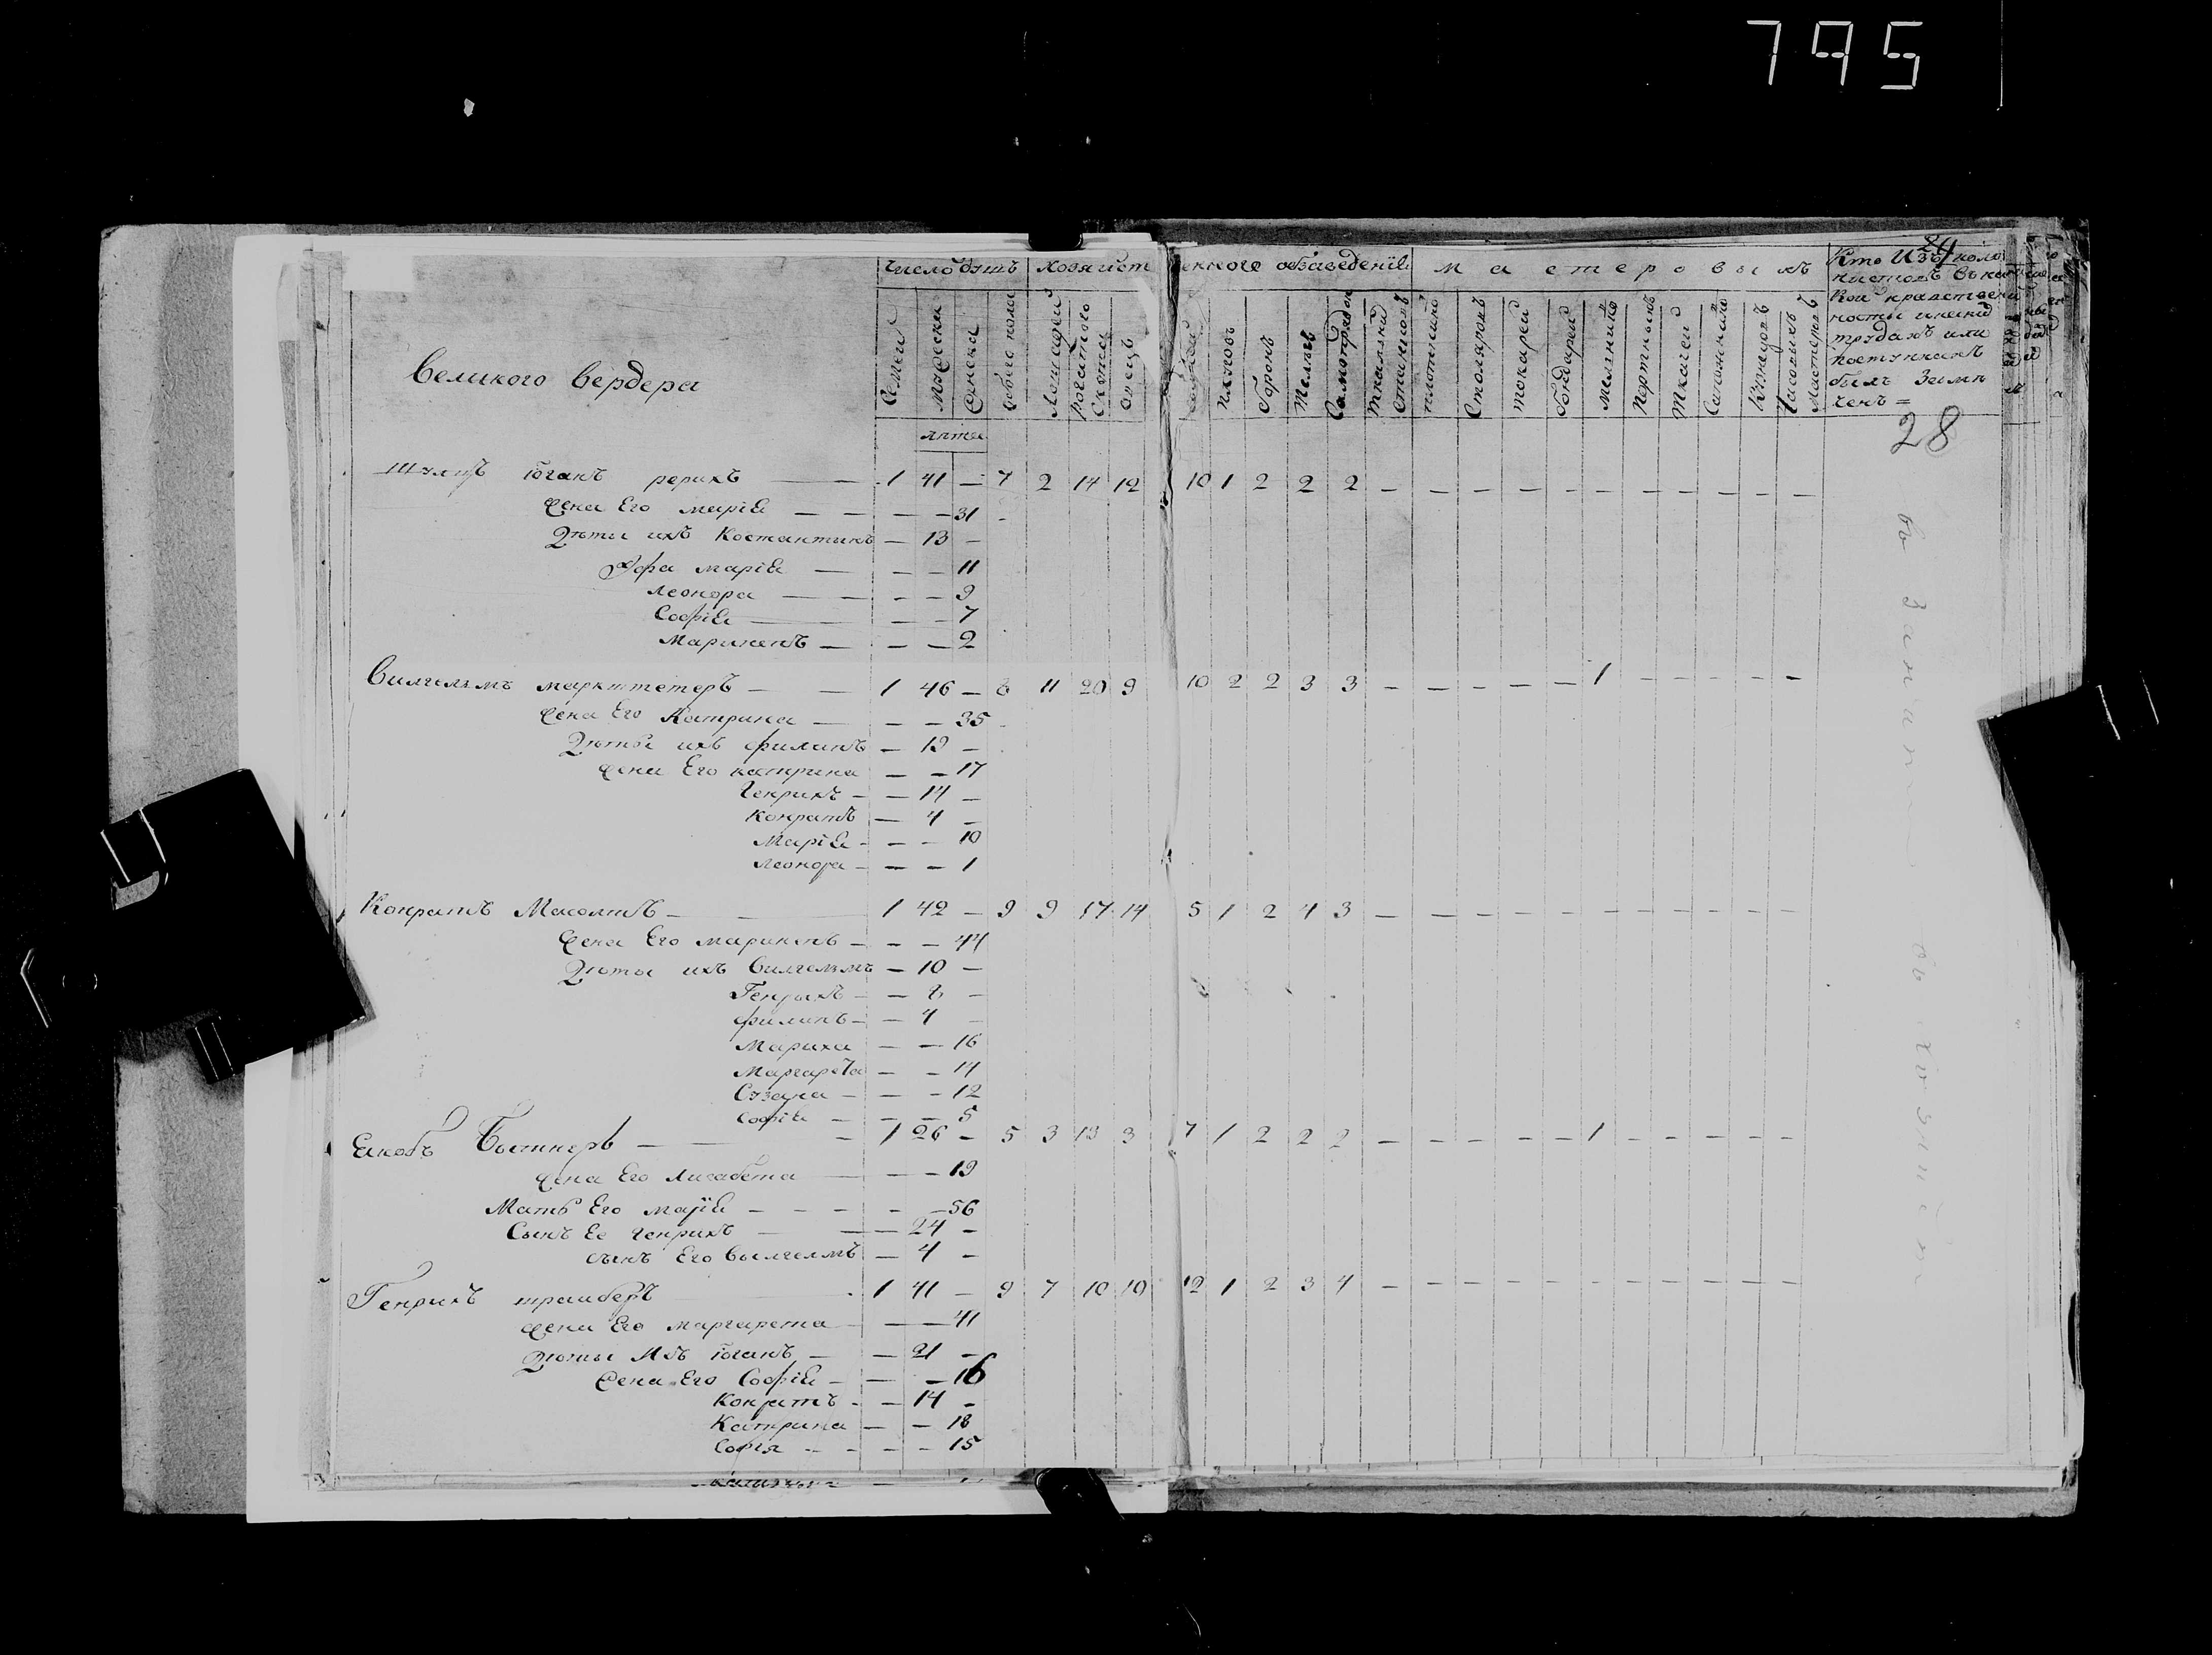 795
24
28
Великого Вердера
Число душъ
Хозяйст
венного обзаведенїя
Мастеровыхъ
Кто Изъ коло
нистовъ въ ка
кой
ностьи
трудахъ или
поступкахъ
былъ заме
ченъ =
Семей
Мужеска
Женска
обоего пола
Лошадей
рогатого Скота
Овецъ
Плуговъ
Боронъ
Телегъ
Самопрялокъ
Ткальныхъ Становъ
плотниковъ
Столяровъ
токарей
бондарей
мельниковъ
Портныхъ
Ткачей
Сапожниковъ
Кузнецовъ
Часовыхъ Мастеровъ
лета
Шульцъ Юганъ рерихъ — — 1 41 — 7 2 14 12 10 1 2 2 2 — — — — — — — — — — —
жена Его марїя — — — — 31
Дети ихъ Костантинъ — 13 —
Ева марїя — — — 11
Леонора — — — — 9
Софїя — — — 7
Марикенъ — — — 2
Вилгелмъ маркштетеръ — — 1 46 — 8 11 20 9 10 2 2 3 3 — — — — — 1 — — — — —
жена Его Катрина — — — 35
Дети ихъ филипъ — 19 —
жена Его катрина — — 17
Генрихъ — — 14 —
Конратъ — 4 —
Марїя — — — 10
Леонора — — — 1
Конратъ — 1 42 — 9 9 17 14 5 1 2 4 3 — — — — — — — — — — —
жена Его марикенъ — — — 44
Дети ихъ Вилгелмъ — 10 —
Генрихъ — — 8 —
филипъ — — 4 —
Мариха — — 16
Маргарета — — 14
Сузана — — — 12
Софїя — — — 5
Якобъ — — 1 26 — 5 3 13 3 7 1 2 2 2 — — — — — 1 — — — — —
жена Его Лисабета — — — 19
Мать Его марїя — — — — — 56
Сынъ Ее генрихъ — — — 24 —
сынъ Его Вилгелмъ — 4 —
Генрихъ траиберъ — 1 41 — 9 7 10 10 12 1 2 3 4 — — — — — — — — — — —
жена Его маргарета — — — 41
Дети Ихъ юганъ — — 21 —
жена Его Софїя — — — 16
Конратъ — — 14 —
Катрина — — 18
Софїя — — — — 15